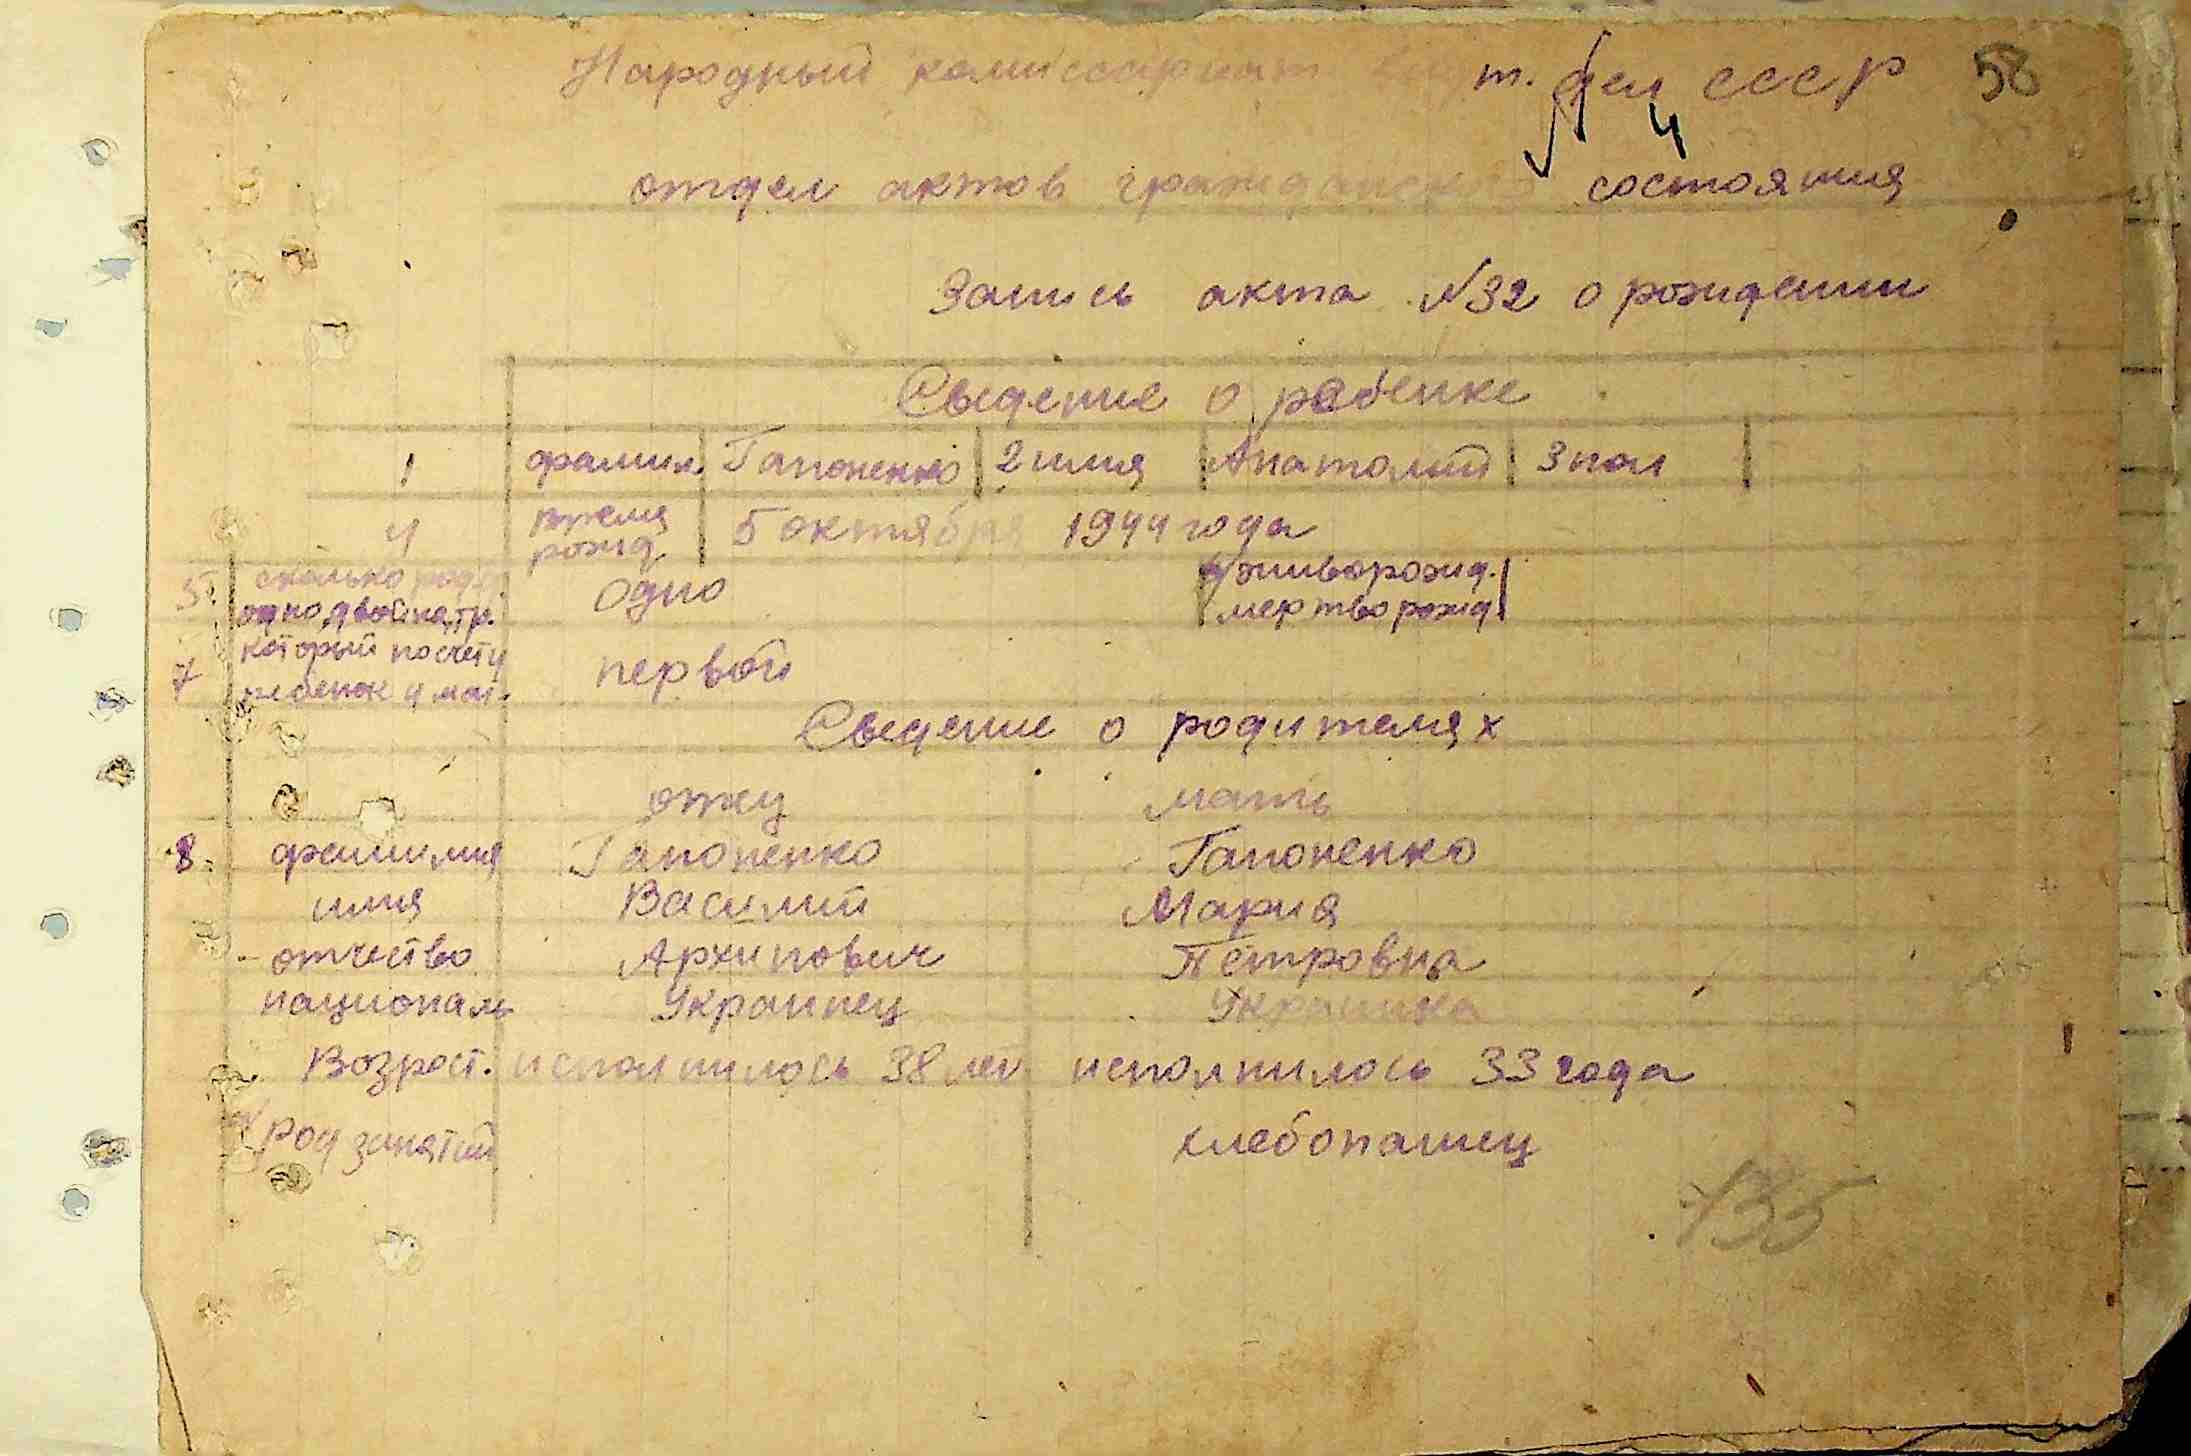 Народный комиссариат т. дел СССР 58
4
отдел актов гражданского состояния
Запись акта №32 о рождении
Сведение о ребенке
1 фамил. Гапоненко 2 имя Анатолий 3 пол
4 время рожд. 5 октября 1944 года
5. сколько род. одно, двойня, тр. Одно живорожд. мертворожд.
7 который по счету ребенок у мат. первой
Сведение о родителях
отец мать
8. фамилия Гапоненко Гапоненко
имя Василий Мария
отчество Архипович Петровна
националь Украинец Украинка
Возраст. исполнилось 38 лет исполнилось 33 года
род занятий хлебопашец
135